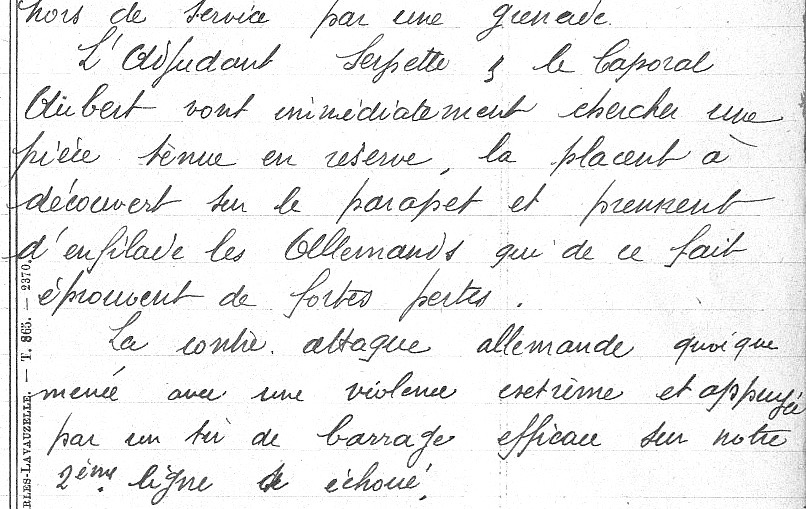 hors de service par une grenade.
L'Adjudant Serpette & le Caporal
Aubert vont immédiatement chercher une
pièce tenue en réserve, la placent à
découvert sur le parapet et prennent
d'enfilade les Allemands qui de ce fait
éprouvent de fortes pertes.
La contre-attaque allemande quoique
menée avec une violence extrême et appuyée
par un tir de barrage efficace sur notre
2ème ligne a échoué.
RLES-LAVAUZELLE. — T. 865. — 2370.